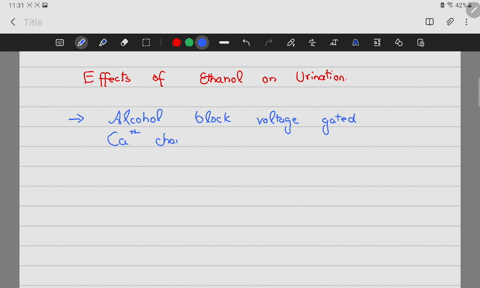 11:31
42%
Title
Effects of Ethanol on Urination.
→ Alcohol block voltage gated
Ca⁺⁺ cha